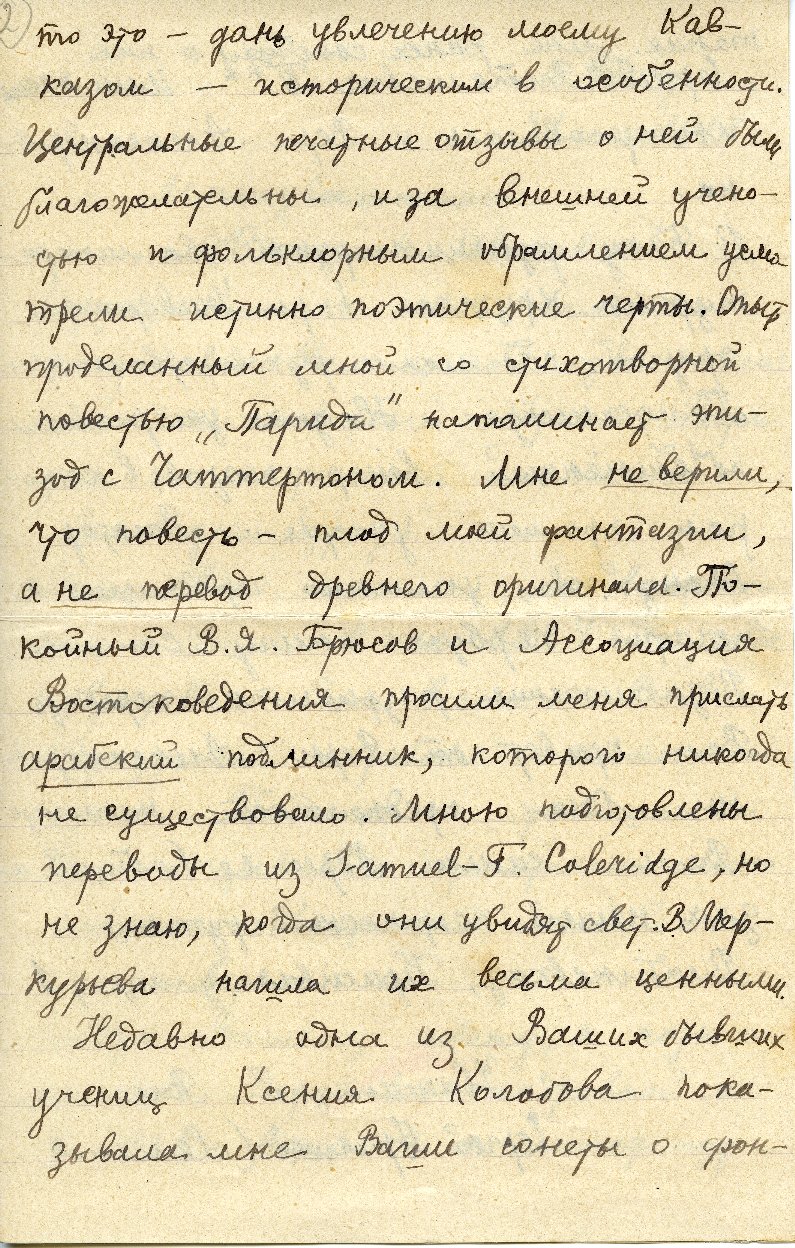 2)
то это – дань увлечению моему Кав-
казом – историческим в особенности.
Центральные печатные отзывы о ней были
благожелательны, и за внешней учено-
стью и фольклорным обрамлением усмо-
трели истинно поэтические черты. Опыт
проделанный мной со стихотворной
повестью „Парида" напоминает эпи-
зод с Чаттертоном. Мне не верили,
что повесть – плод моей фантазии,
а не перевод древнего оригинала. По-
койный В.Я. Брюсов и Ассоциация
Востоковедения просили меня прислать
арабский подлинник, которого никогда
не существовало. Мною подготовлены
переводы из Samuel-T. Coleridge, но
не знаю, когда они увидят свет. В Мер-
курьева нашла их весьма ценными.
Недавно одна из Ваших бывших
учениц Ксения Колобова пока-
зывала мне Ваши сонеты о фон-